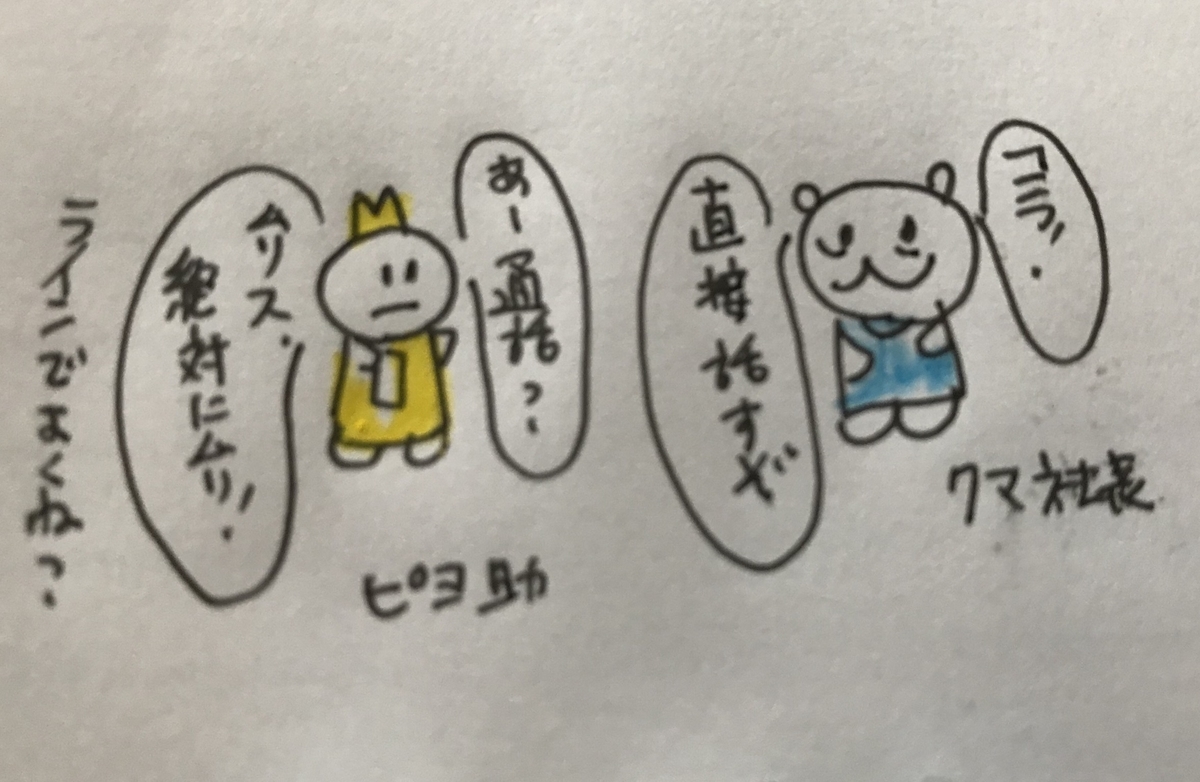 コラ!
直接話すぞ
クマ社長
あー通話?
ピヨ助
ムリス.
絶対にムリ!
ラインでよくね?